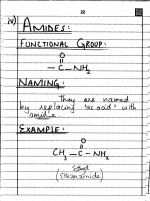 22
iv) AMIDES:
FUNCTIONAL GROUP:
O
– C – NH₂
NAMING:
They are named
by replacing 'ic acid' with
'amide.
EXAMPLE:
O
CH₃ – C – NH₂
(Ethanamide)